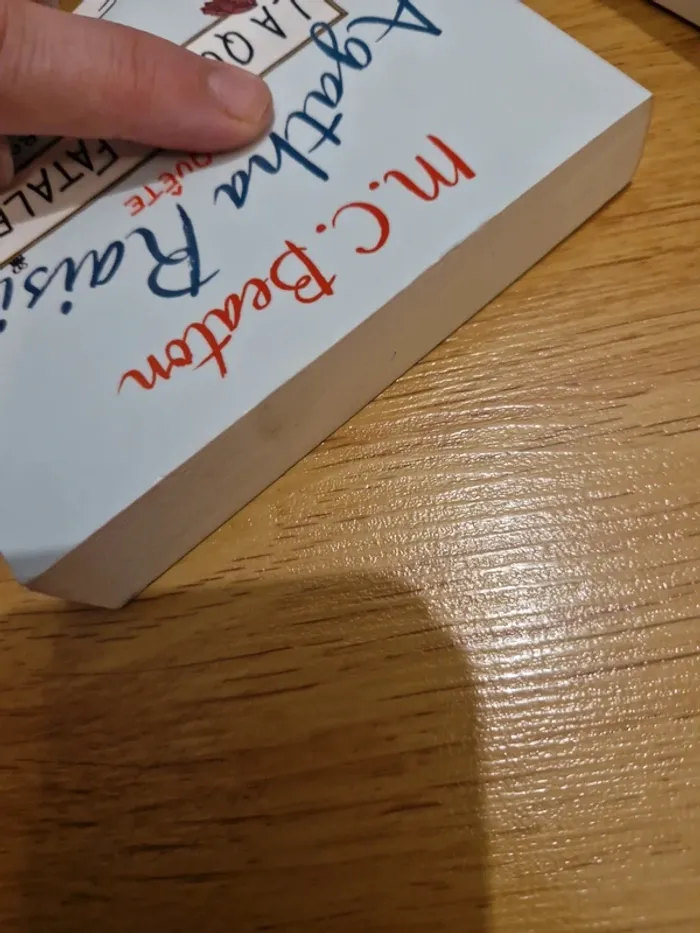 M.C. Beaton
Agatha Raisi
QUÊTE
LA QU
FATALE